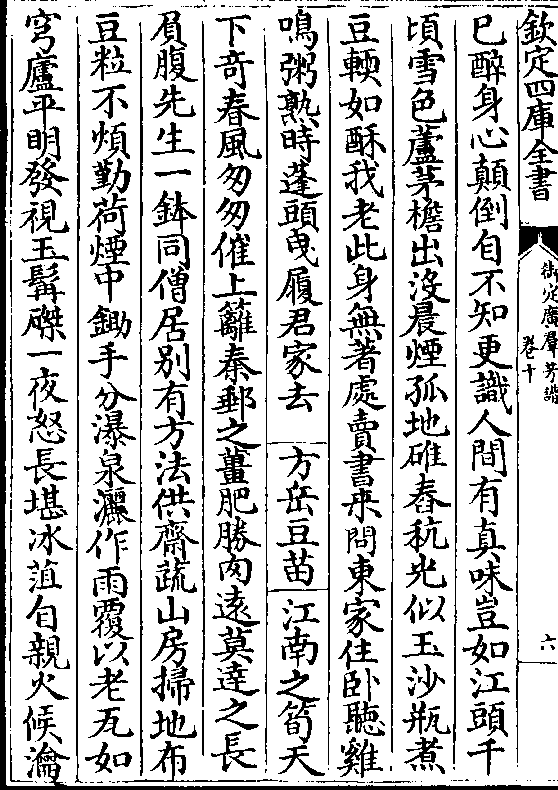 欽定四庫全書
御定廣羣芳譜
卷十
六
已醉身心顛倒自不知更識人間有真味豈如江頭千
頃雪色蘆茅檐出没晨煙孤地碓舂秔光似玉沙瓶煮
豆輭如酥我老此身無著處賣書來問東家住卧聽雞
鳴粥熟時蓬頭曳履君家去 方岳豆苗 江南之筍天
下竒春風匆匆催上籬秦郵之薑肥勝肉遠莫逹之長
負腹先生一鉢同僧居别有方法供齋蔬山房掃地布
豆粒不煩勤荷煙中鋤手分瀑泉灑作雨覆以老瓦如
穹廬平明發視玉髯磔一夜怒長堪冰菹自親火候瀹